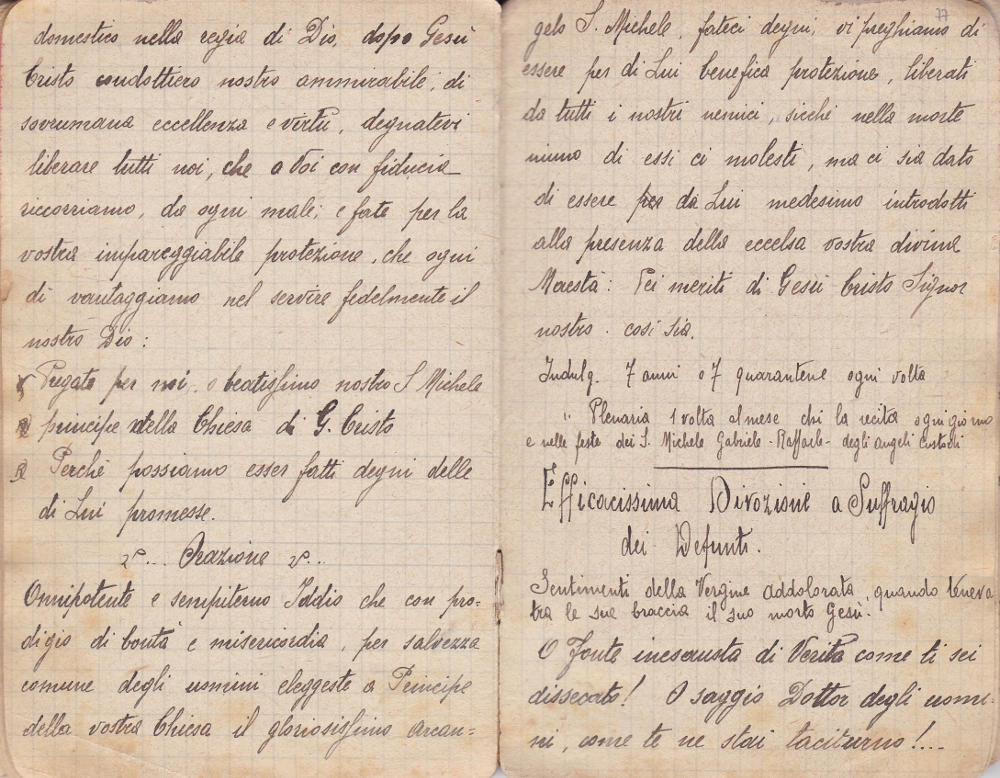 domestico nella regia di Dio, dopo Gesù
Cristo condottiero nostro ammirabile, di
sovrumana eccellenza e virtù, degnatevi
liberare tutti noi, che a Voi con fiducia
riccorriamo, da ogni male; e fate per la
vostra impareggiabile protezione, che ogni
di vantaggiamo nel servire fedelmente il
nostro Dio:
Pregate per noi o beatissimo nostro S Michele
principe della Chiesa di G. Cristo
R Perchè possiamo esser fatti degni delle
di Lui promesse.
... Orazione ...
Onnipotente e sempiterno Iddio che con pro=
digio di bontà e misericordia, per salvezza
comune degli uomini eleggeste a Principe
della vostra Chiesa il gloriosissimo arcan=
77
gelo S. Michele, fateci degni, vi preghiamo di
essere per di Lui benefica protezione, liberati
da tutti i nostri nemici, sicchè nella morte
niuno di essi ci molesti, ma ci sia dato
di essere da Lui medesimo introdotti
alla presenza della eccelsa vostra divina
Maestà: Pei meriti di Gesù Cristo Signor
nostro. così sia.
Indulg. 7 anni o 7 quarantene ogni volta
" Plenaria 1 volta al mese chi la recita ogni giorno
e nelle feste dei S. Michele Gabriele - Raffaele - degli angeli custodi
Efficacissima Divozione a Suffragio
dei Defunti.
Sentimenti della Vergine addolorata, quando teneva
tra le sue braccia il suo morto Gesù.
O Fonte inesausta di Verità come ti sei
disseccato! O saggio Dottor degli uomi-
ni, come te ne stai taciturno!...